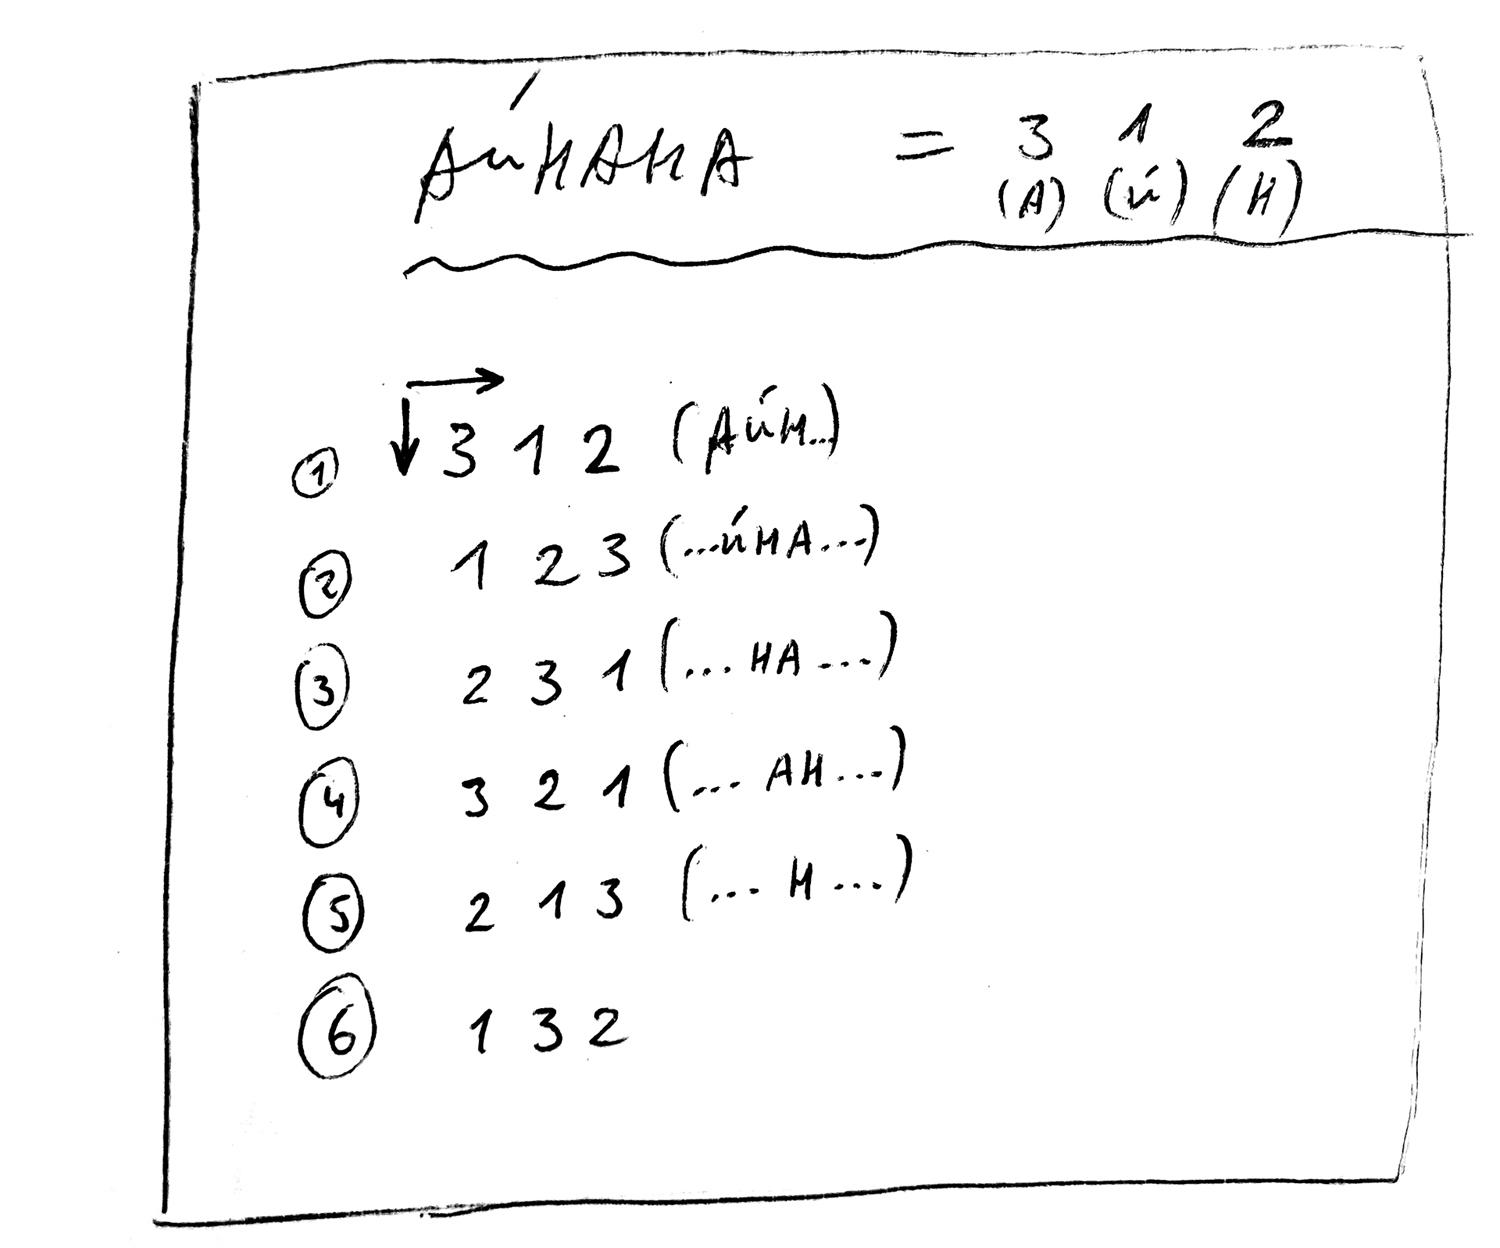 АЙНАНА = 3 1 2
(А) (Й) (Н)
① 3 1 2 (АЙН..)
② 1 2 3 (...ЙНА...)
③ 2 3 1 (...НА...)
④ 3 2 1 (...АН...)
⑤ 2 1 3 (...Н...)
⑥ 1 3 2